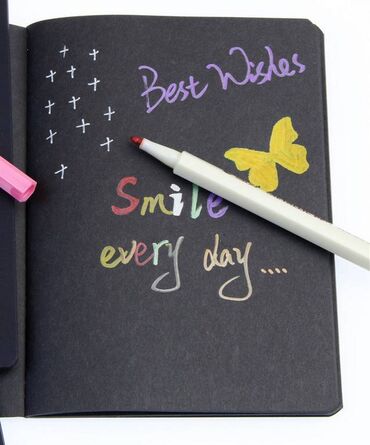 Best Wishes
Smile
every day....